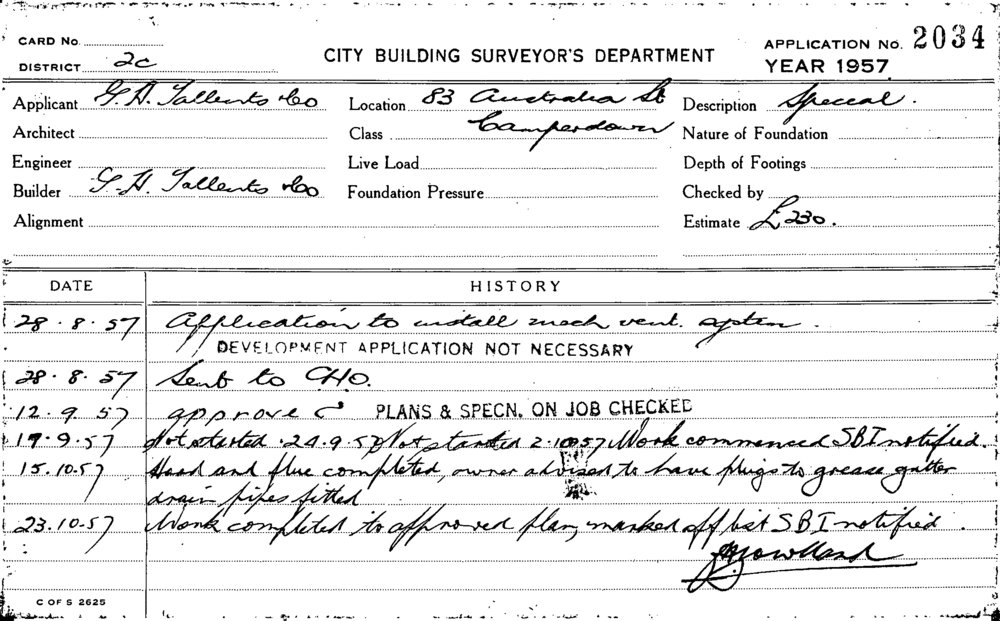 CARD No.
CITY BUILDING SURVEYOR'S DEPARTMENT
APPLICATION No. 2034
DISTRICT 2c
YEAR 1957
Applicant G. H. Tallents & Co
Location 83 Australia St
Camperdown
Description Special.
Architect
Class
Nature of Foundation
Engineer
Live Load
Depth of Footings
Builder G. H. Tallents & Co
Foundation Pressure
Checked by
Alignment
Estimate £230.
DATE HISTORY
28.8.57 Application to install mech vent. system.
DEVELOPMENT APPLICATION NOT NECESSARY
28.8.57 Sent to CHO.
12.9.57 approved PLANS & SPECN. ON JOB CHECKED
17.9.57 Not started. 24.9.57 Not started 2.10.57 Work commenced SBI notified.
15.10.57 Hood and flue completed, owner advised to have plugs to grease gutter
drain pipes fitted
23.10.57 Work completed to approved plan, marked off list SBI notified.
C OF S 2625